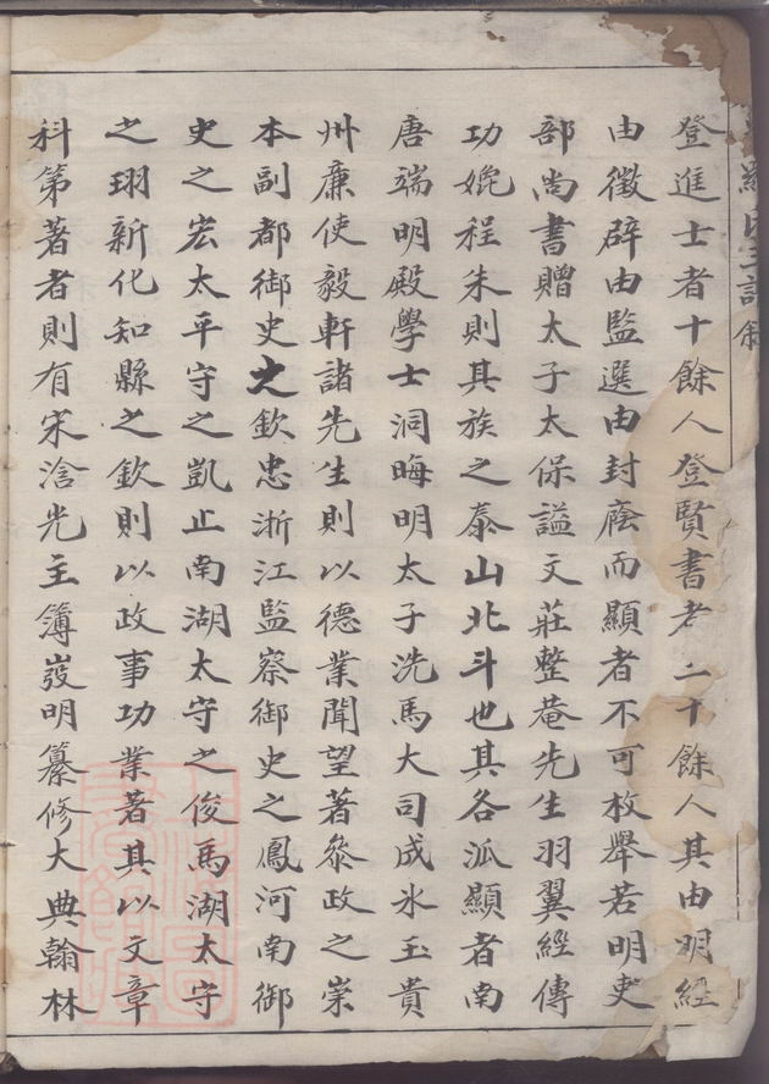 羅氏三譜敘
登進士者十餘人登賢書者二十餘人其由明經
由徵辟由監選由封廕而顯者不可枚舉若明吏
部尚書贈太子太保諡文莊整菴先生羽翼經傳
功媲程朱則其族之泰山北斗也其各派顯者南
唐端明殿學士洞晦明太子洗馬大司成氷玉貴
州廉使毅軒諸先生則以德業聞望著叅政之崇
本副都御史之欽忠浙江監察御史之鳳河南御
史之宏太平守之凱止南湖太守之俊馬湖太守
之珝新化知縣之欽則以政事功業著其以文章
科第著者則有宋澹光主簿㟧明纂修大典翰林